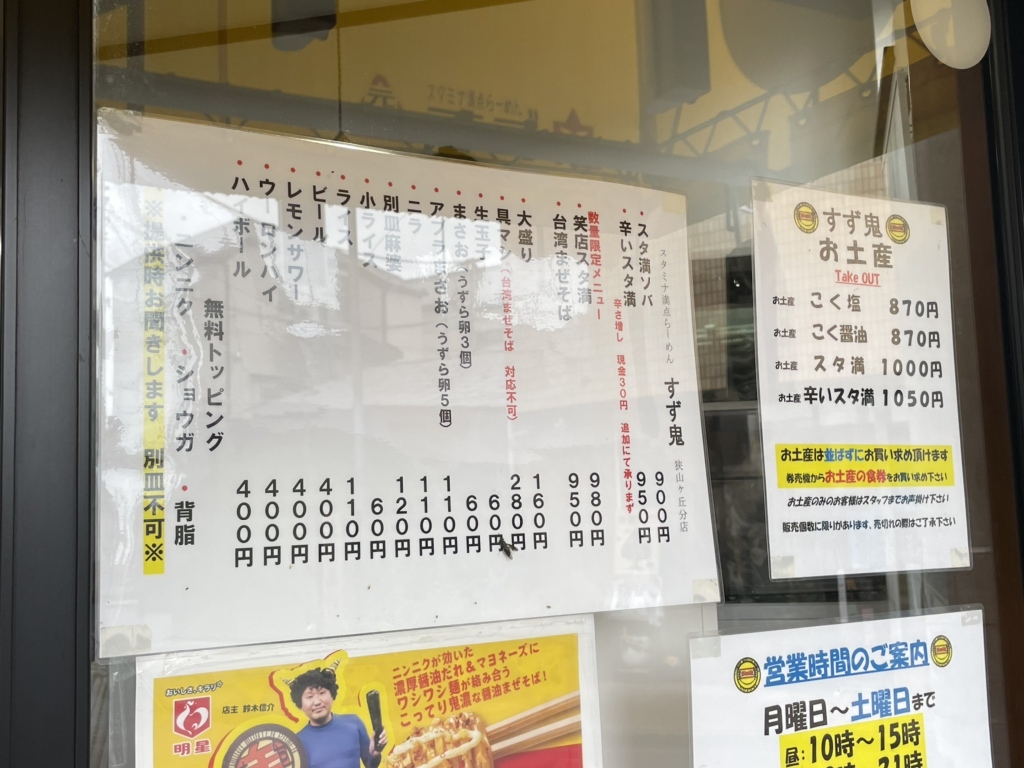 スタミナ満点らーめん すず鬼 狭山ヶ丘分店
・スタ満ソバ 900円
・辛いスタ満 950円
辛さ増し 現金30円 追加にて承ります
数量限定メニュー
・笑店スタ満 980円
・台湾まぜそば 950円
・大盛り 160円
・具マシ(台湾まぜそば 対応不可) 280円
・生玉子 60円
・まさお(うずら卵3個) 60円
・アブラまさお(うずら卵5個) 110円
・ニラ 110円
・別皿麻婆 120円
・小ライス 60円
・ライス 110円
・ビール 400円
・レモンサワー 400円
・ウーロンハイ 400円
・ハイボール 400円
無料トッピング
・ニンニク ・ショウガ ・背脂
※提供時お聞きします 別皿不可※
すず鬼
お土産
Take OUT
お土産 こく塩 870円
お土産 こく醤油 870円
お土産 スタ満 1000円
お土産 辛いスタ満 1050円
お土産は並ばずにお買い求め頂けます
券売機からお土産の食券をお買い求め下さい
お土産のみのお客様はスタッフまでお声掛け下さい
販売個数に限りがあります、売切れの際はご了承下さい
おいしさ、キラリ
明星
店主 鈴木信介
ニンニクが効いた
濃厚醤油だれ&マヨネーズに
ワシワシ麺が絡み合う
こってり鬼濃な醤油まぜそば!
営業時間のご案内
月曜日～土曜日まで
昼:10時～15時